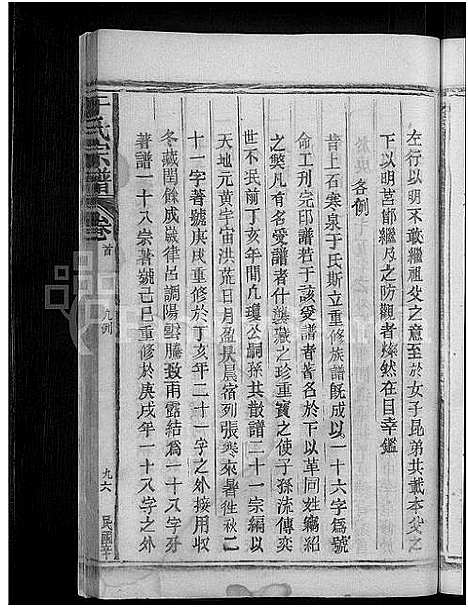 左行以明不敢繼祖父之意至於女子昆弟共載本父之
下以明莒鄫繼及之防觀者燦然在目幸鑑
各例
昔上石寒泉于氏斯立重修族譜旣成以一十六字爲號
命工刊完印譜若干該愛譜者著名於下以革同姓竊紹
之獘凡有名愛譜者什襲藏之珍重寶之使子孫流傳奕
世不泯前丁亥年間凡瓊公嗣孫共散譜二十一宗編以
天地元黃宇宙洪荒日月盈昃晨宿列張寒來暑徃秋二
十一字著號庚戌重修於丁亥年二十一字之外接用收
冬藏閏餘成嵗律呂調陽雲騰致雨露結爲一十八字分
著譜一十八宗著號己巳重修於庚戌年一十八字之外
于氏宗譜
卷首
凡例
九六